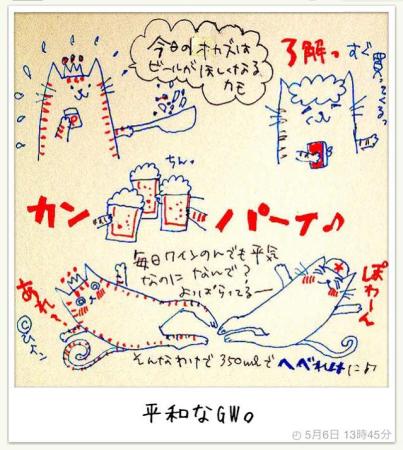 今日のオカズは
ビールがほしくなる
カモ
了解っ すぐ
買ってくるっ
ちん。
カンパーイ♪
毎日ワインのんでも平気
なのに なんで?
よっぱらってるー
あれ〜
ぽわーん
そんなわけで 350mlで へべれけに♪
平和なGW。
5月6日 13時45分